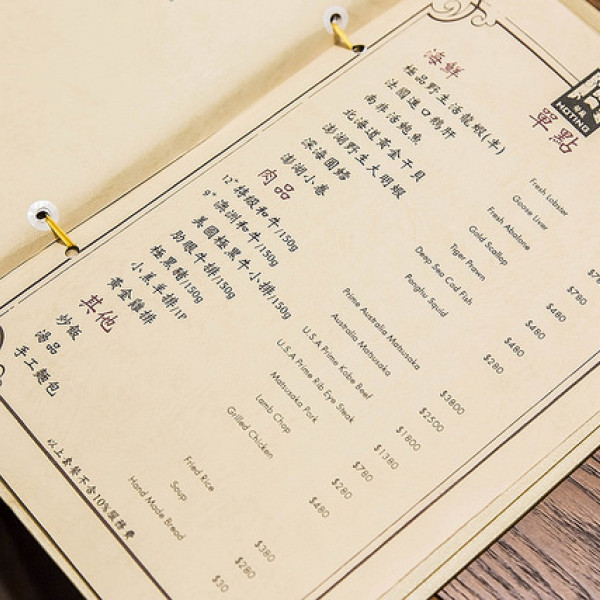 HOTING
單點
海鮮
極品野生活龍蝦(半) Fresh Lobster
法國進口鵝肝 Goose Liver $780
南非活鮑魚 Fresh Abalone $480
北海道黃金干貝 Gold Scallop $480
澎湖野生大明蝦 Tiger Prawn $480
深海圓鱈 Deep Sea Cod Fish $480
澎湖小卷 Penghu Squid $280
肉品
12⁺特級和牛/150g Prime Australia Matsusaka $3800
9⁺澳洲和牛/150g Australia Matsusaka $2500
美國極黑牛小排/150g U.S.A Prime Kobe Beef $1800
肋眼牛排/150g U.S.A Prime Rib Eye Steak $1380
極黑豬/150g Matsusaka Pork $780
小羔羊排/1P Lamb Chop $280
黃金雞排 Grilled Chicken $480
其他
炒飯 Fried Rice $380
湯品 Soup $280
手工麵包 Hand Made Bread $30
以上套餐不含10%服務費